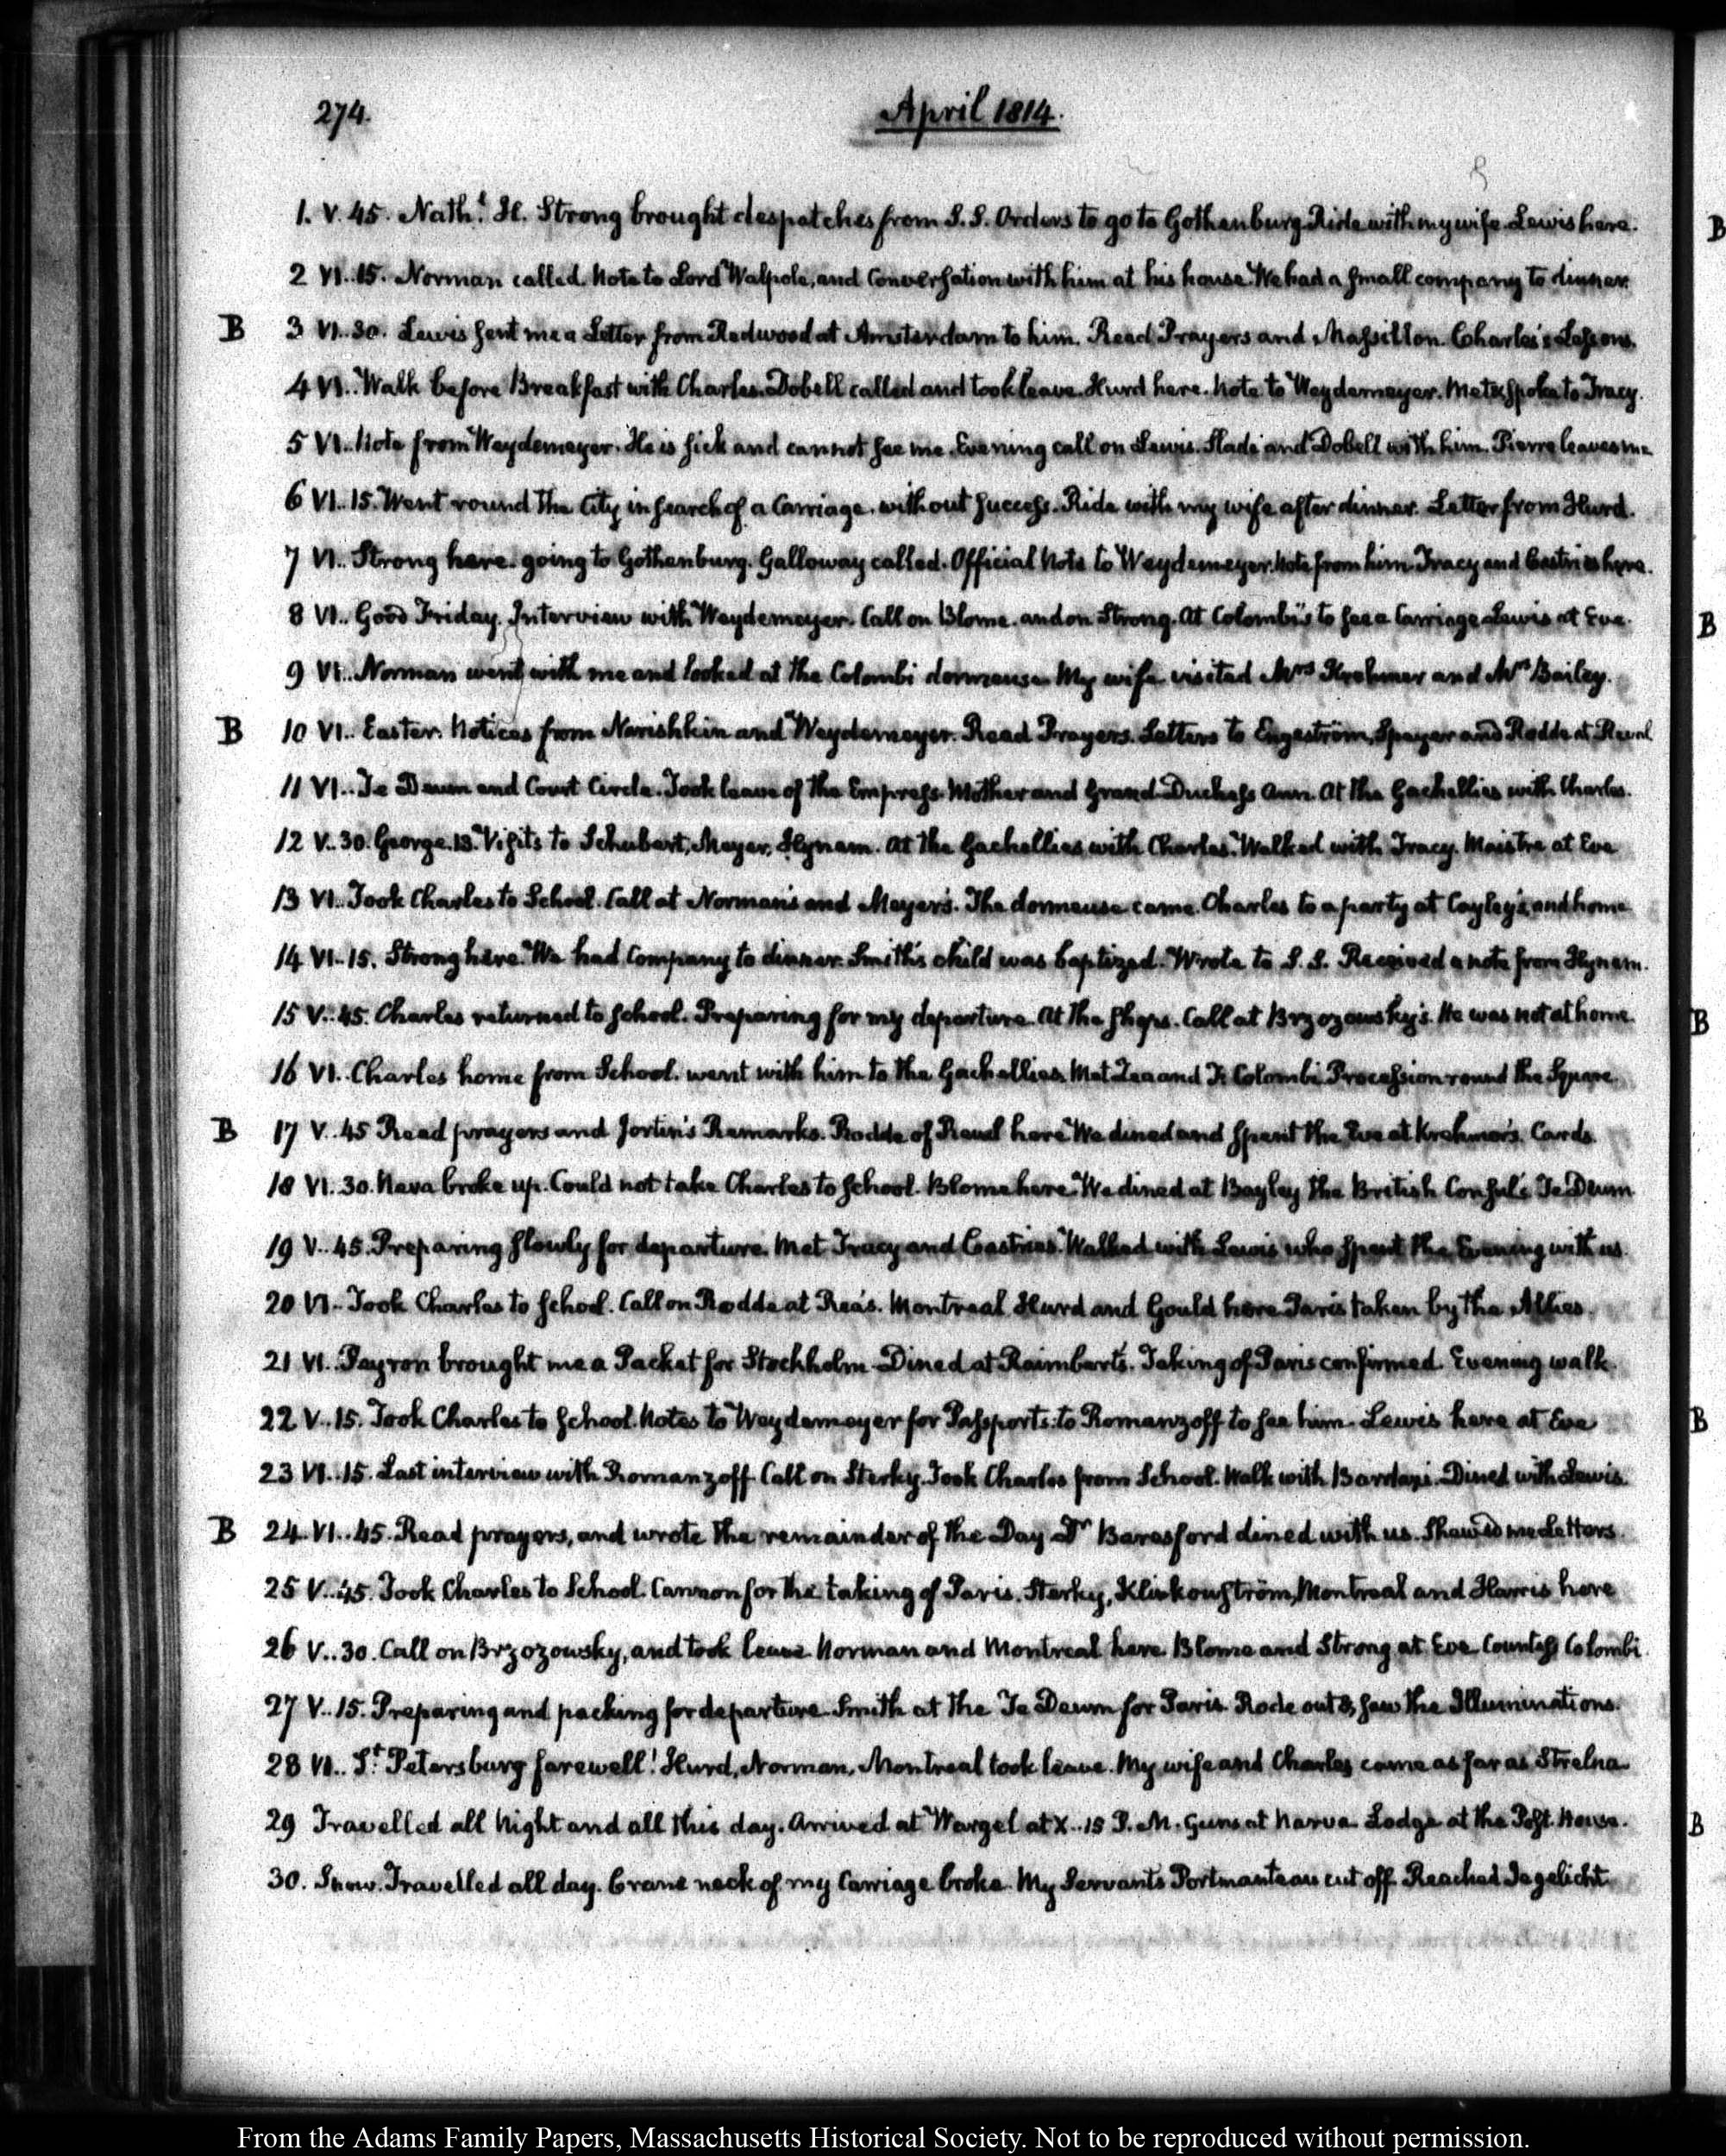 274.
April 1814.
1. V. 45. Nath.l H. Strong brought despatches from S.S. Orders to go to Gothenburg. Ride with my wife. Lewis here.
2 VI..15. Norman called. Note to Lord Walpole, and Conversation with him at his house. We had a small company to dinner.
B 3 VI..30. Lewis sent me a Letter from Redwood at Amsterdam to him. Read Prayers and Massillon. Charles's Lessons.
4 VI.. Walk before Breakfast with Charles. Dobell called and took leave. Hurd here. Note to Weydemeyer. Met & spoke to Tracy.
5 VI.. Note from Weydemeyer. He is sick and cannot see me. Evening call on Lewis. Slade and Dobell with him. Pierre leaves me
6 VI..15. Went round the City in search of a Carriage, without success. Ride with my wife after dinner. Letter from Hurd.
7 VI.. Strong here. going to Gothenburg. Galloway called. Official Note to Weydemeyer. Note from him. Tracy and Castries here.
8 VI.. Good Friday. Interview with Weydemeyer. Call on Blome. and on Strong. At Colombi's to see a Carriage Lewis at Eve.
9 VI.. Norman went with me and looked at the Colombi dormeuse. My wife visited Mrs Krehmer and Mrs Bailey.
B 10 VI.. Easter. Notices from Narishkin and Weydemeyer. Read Prayers. Letters to Engeström, Speyer and Rodde at Reval
11 VI.. Te Deum and Court Circle. Took leave of the Empress-Mother and Grand-Duchess Ann. At the Gachellies with Charles.
12 V..30. George. 13. Visits to Schubert, Meyer, Hynam. At the Gachellies with Charles. Walked with Tracy. Maistre at Eve
13 VI.. Took Charles to School. Call at Norman's and Meyer's. The dormeuse came. Charles to a party at Cayley's, and home
14 VI..15. Strong here. We had Company to dinner. Smith's child was baptized. Wrote to S.S. Received a note from Hynam.
15 V..45. Charles returned to School. Preparing for my departure. At the Shops. Call at Brzozowsky's. He was not at home.
16 VI.. Charles home from School. went with him to the Gachellies. Met Zea and F. Colombi. Procession round the Square.
B 17 V..45 Read prayers and Jortin's Remarks. Rodde of Reval here. We dined and spent the Eve at Krehmer's. Cards.
18 VI..30. Neva broke up. Could not take Charles to School. Blome here. We dined at Bayley the British Consul's. Te Deum
19 V..45. Preparing slowly for departure. Met Tracy and Castries. Walked with Lewis who spent the Evening with us.
20 VI.. Took Charles to School. Call on Rodde at Rea's. Montreal Hurd and Gould here. Paris taken by the Allies.
21 VI. Peyron brought me a Packet for Stockholm. Dined at Raimbert's. Taking of Paris confirmed. Evening walk.
22 V..15. Took Charles to School. Notes to Weydemeyer for Passports: to Romanzoff to see him. Lewis here at Eve
23 VI..15. Last interview with Romanzoff. Call on Sterky. Took Charles from School. Walk with Bardaxi. Dined with Lewis.
B 24. VI..45. Read prayers, and wrote the remainder of the Day. Dr Beresford dined with us. Shewed me Letters.
25 V..45. Took Charles to School. Cannon for the taking of Paris. Sterky, Klinkowström, Montreal and Harris here
26 V..30. Call on Brzozowsky, and took leave. Norman and Montreal here. Blome and Strong at Eve. Countess Colombi.
27 V..15. Preparing and packing for departure. Smith at the Te Deum for Paris. Rode out & saw the Illuminations.
28 VI.. St. Petersburg farewell! Hurd, Norman, Montreal took leave. My wife and Charles came as far as Strelna
29 Travelled all Night and all this day. Arrived at Wargel at X..15 P.M. Guns at Narva. Lodge at the Post House.
30. Snow. Travelled all day. Crane neck of my Carriage broke. My Servant's Portmanteau cut off. Reached Jegelicht.
B
B
B
B
B
From the Adams Family Papers, Massachusetts Historical Society. Not to be reproduced without permission.